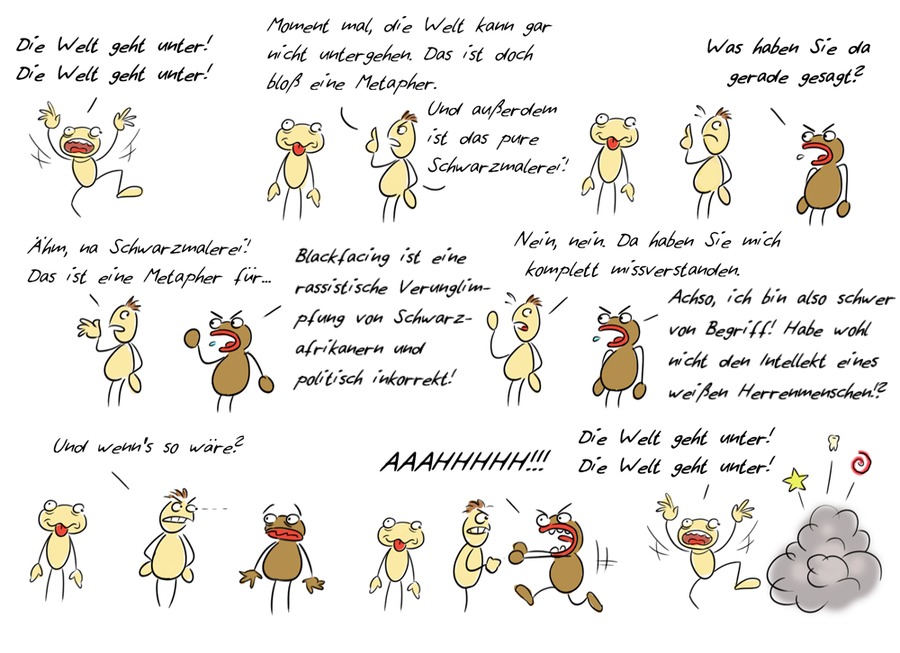 Die Welt geht unter!
Die Welt geht unter!
Moment mal, die Welt kann gar
nicht untergehen. Das ist doch
bloß eine Metapher.
Und außerdem
ist das pure
Schwarzmalerei!
Was haben Sie da
gerade gesagt?
Ähm, na Schwarzmalerei!
Das ist eine Metapher für...
Blackfacing ist eine
rassistische Verunglim-
pfung von Schwarz-
afrikanern und
politisch inkorrekt!
Nein, nein. Da haben Sie mich
komplett missverstanden.
Achso, ich bin also schwer
von Begriff! Habe wohl
nicht den Intellekt eines
weißen Herrenmenschen!?
Und wenn's so wäre?
AAAHHHHH!!!
Die Welt geht unter!
Die Welt geht unter!